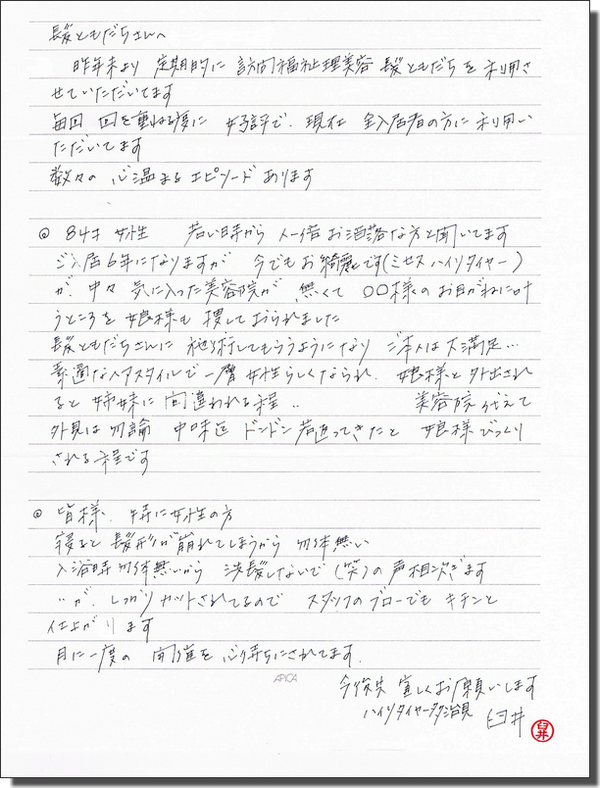 髪ともだちさんへ
昨年末より 定期的に 訪問福祉理美容 髪ともだちを 利用さ
せていただいてます
毎回 回を重ねる度に 好評で、現在 全入居者の方に利用い
ただいてます
数々の 心温まるエピソードあります
◎ 84才 女性 若い時から 人一倍 お洒落な方と聞いてます
ご入居6年になりますが 今でもお綺麗です(ミセスハイリタイヤー)
が、中々 気に入った美容院が 無くて 〇〇様のお目がねに叶
うところを 娘様も 捜しておられました
髪ともだちさんに 施術してもらうようになり ご本人は大満足…
素適なヘアスタイルで一層 女性らしくなられ、娘様と外出され
ると 姉妹に 間違われる程‥ 美容院代えて
外見は勿論 中味迄 ドンドン若返ってきたと 娘様びっくり
される程です
◎ 皆様、特に女性の方
寝ると 髪形が崩れてしまうから 勿体無い
入浴時 勿体無いから 洗髪しないで(笑)の声相次ぎます
〃が、しっかりカットされてるので スタッフのブローでも キチンと
仕上がります
月に一度の 開催を 心待ちにされてます。
APICA
今後共 宜しくお願いします
ハイリタイヤー多治見 臼井
臼井